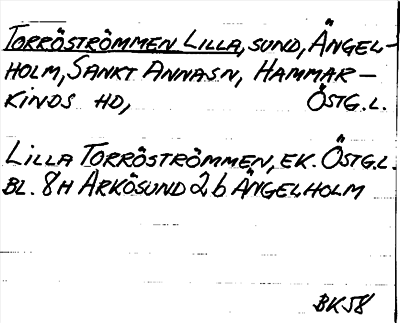 TORRÖSTRÖMMEN LILLA, SUND, ÄNGEL-
HOLM, SANKT ANNA SN, HAMMAR-
KINDS HD, ÖSTG.L.
LILLA TORRÖSTRÖMMEN, EK. ÖSTG.L.
BL. 8H ARKÖSUND 2b ÄNGELHOLM
BK58